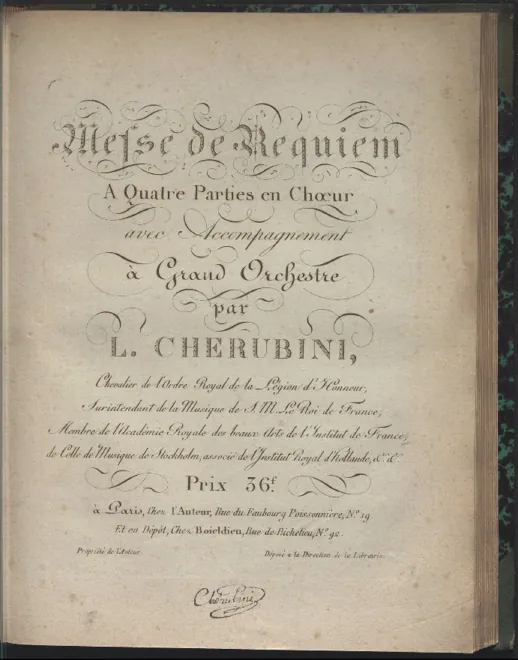 Messe de Requiem
A Quatre Parties en Chœur
avec Accompagnement
à Grand Orchestre
par
L. CHERUBINI,
Chevalier de l'Ordre Royal de la Légion d'Honneur,
Surintendant de la Musique de S. M. Le Roi de France,
Membre de l'Académie Royale des beaux Arts de l'Institut de France,
de Celle de Musique de Stockholm, associé de l'Institut Royal d'Hollande, &c. &c.
Prix 36f.
à Paris, Chez l'Auteur, Rue du Faubourg Poissonnière, No. 19
Et en Dépôt, Chez Boieldieu, Rue de Richelieu, No. 92.
Propriété de l'Auteur.
Déposé à la Direction de la Librairie.
Cherubini